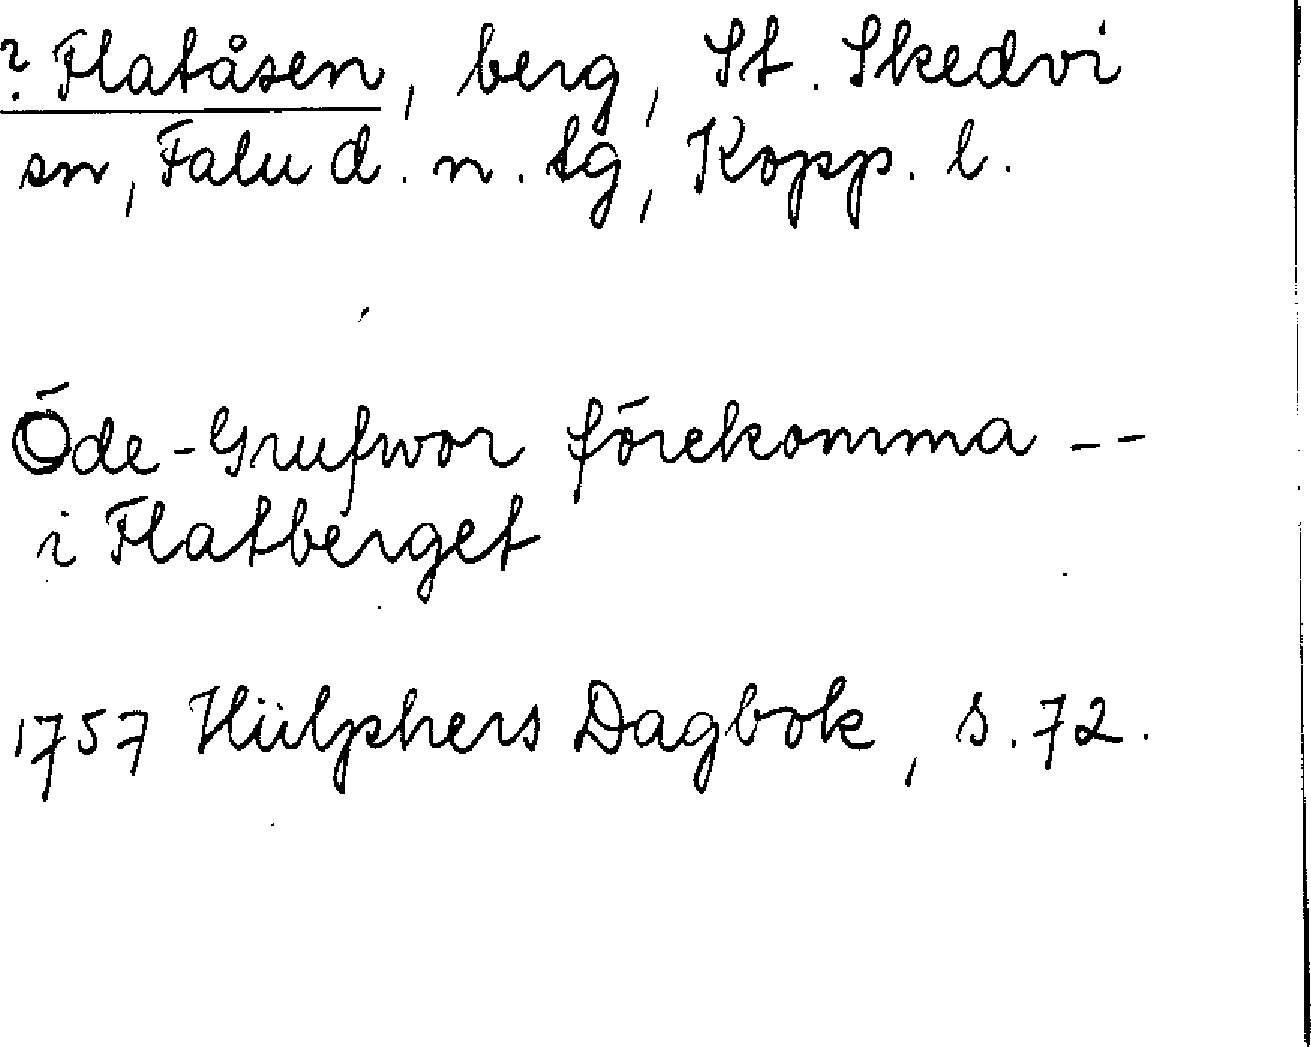 ? Flatåsen, berg, St. Skedvi
sn, Falu d. n. tg, Kopp. l.
Öde-Grufwor förekomma --
i Flatberget
1757 Hülphers Dagbok, s. 72.